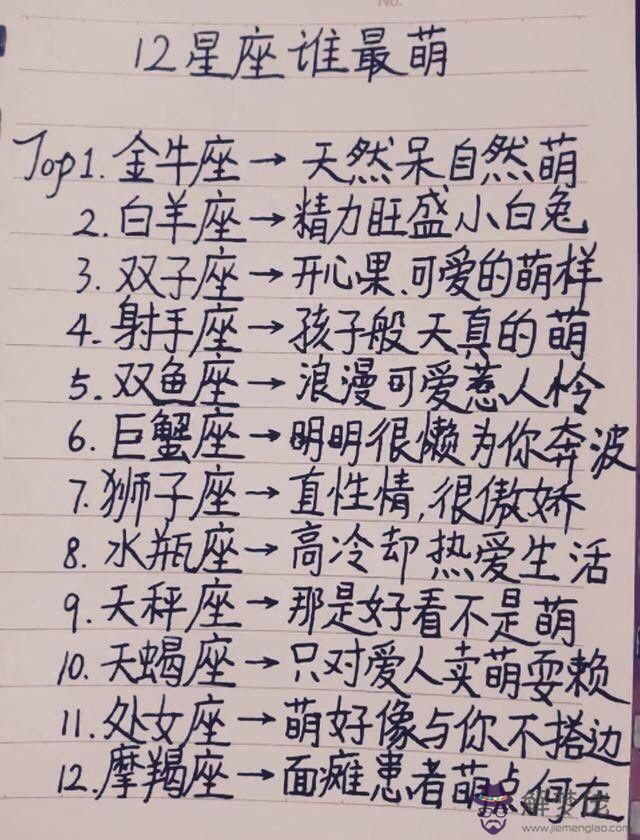 No.
12星座谁最萌
Top1.金牛座→天然呆自然萌
2.白羊座→精力旺盛小白兔
3.双子座→开心果.可爱的萌样
4.射手座→孩子般天真的萌
5.双鱼座→浪漫可爱惹人怜
6.巨蟹座→明明很懒为你奔波
7.狮子座→直性情,很傲娇
8.水瓶座→高冷却热爱生活
9.天秤座→那是好看不是萌
10.天蝎座→只对爱人卖萌耍赖
11.处女座→萌好像与你不搭边
12.摩羯座→面瘫患者萌点何在
解梦佬
www.jiemenglao.com